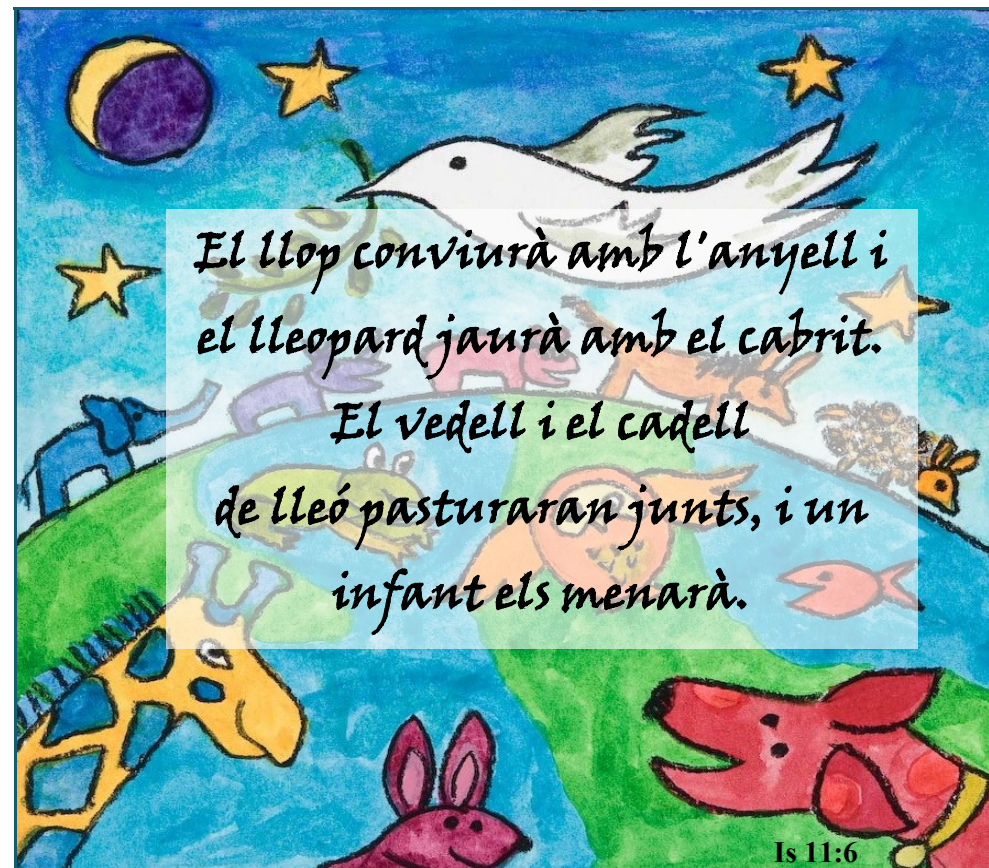 El llop conviurà amb l'anyell i
el lleopard jaurà amb el cabrit.
El vedell i el cadell
de lleó pasturaran junts, i un
infant els menarà.
Is 11:6